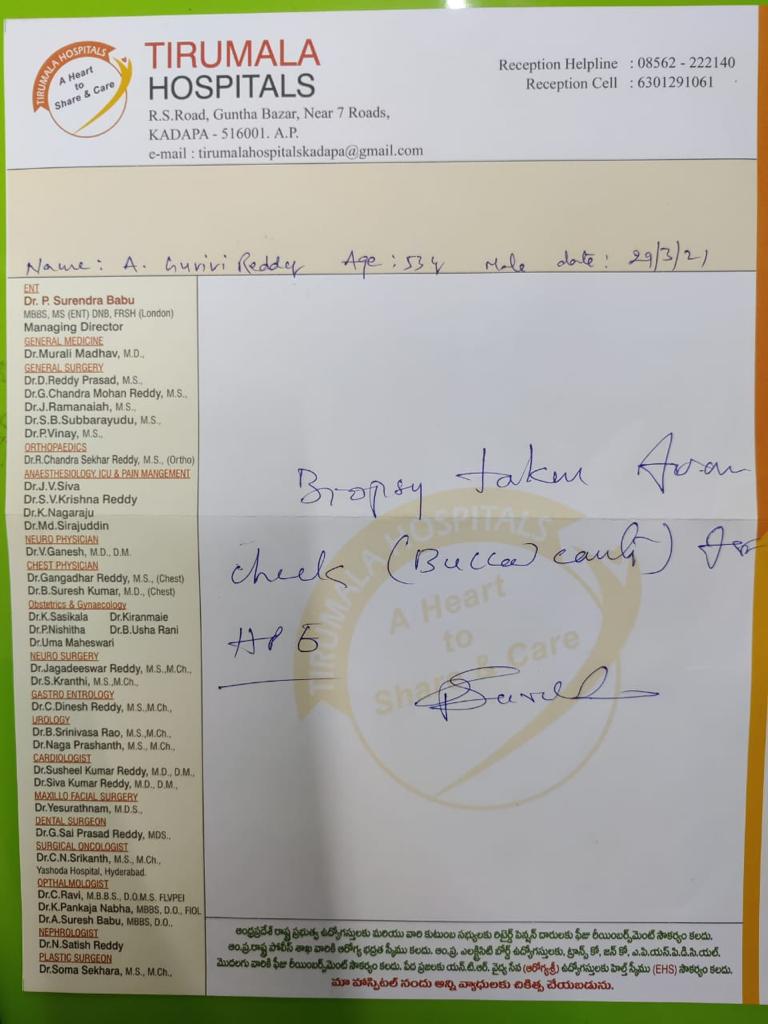 TIRUMALA HOSPITALS
A Heart
to
Share & Care
TIRUMALA
HOSPITALS
R.S.Road, Guntha Bazar, Near 7 Roads,
KADAPA - 516001. A.P.
e-mail : tirumalahospitalskadapa@gmail.com
Reception Helpline : 08562 - 222140
Reception Cell : 6301291061
Name: A. Gurivi Reddy Age: 53 y Male date: 29/3/21
ENT
Dr. P. Surendra Babu
MBBS, MS (ENT) DNB, FRSH (London)
Managing Director
GENERAL MEDICINE
Dr.Murali Madhav, M.D.,
GENERAL SURGERY
Dr.D.Reddy Prasad, M.S.,
Dr.G.Chandra Mohan Reddy, M.S.,
Dr.J.Ramanaiah, M.S.,
Dr.S.B.Subbarayudu, M.S.,
Dr.P.Vinay, M.S.,
ORTHOPAEDICS
Dr.R.Chandra Sekhar Reddy, M.S., (Ortho)
ANAESTHESIOLOGY, ICU & PAIN MANGEMENT
Dr.J.V.Siva
Dr.S.V.Krishna Reddy
Dr.K.Nagaraju
Dr.Md.Sirajuddin
NEURO PHYSICIAN
Dr.V.Ganesh, M.D., D.M.
CHEST PHYSICIAN
Dr.Gangadhar Reddy, M.S., (Chest)
Dr.B.Suresh Kumar, M.D., (Chest)
Obstetrics & Gynaecology
Dr.K.Sasikala Dr.Kiranmaie
Dr.P.Nishitha Dr.B.Usha Rani
Dr.Uma Maheswari
NEURO SURGERY
Dr.Jagadeeswar Reddy, M.S.,M.Ch.,
Dr.S.Kranthi, M.S.,M.Ch.,
GASTRO ENTROLOGY
Dr.C.Dinesh Reddy, M.S.,M.Ch.,
UROLOGY
Dr.B.Srinivasa Rao, M.S.,M.Ch.,
Dr.Naga Prashanth, M.S., M.Ch.,
CARDIOLOGIST
Dr.Susheel Kumar Reddy, M.D., D.M.,
Dr.Siva Kumar Reddy, M.D., D.M.,
MAXILLO FACIAL SURGERY
Dr.Yesurathnam, M.D.S.,
DENTAL SURGEON
Dr.G.Sai Prasad Reddy, MDS.,
SURGICAL ONCOLOGIST
Dr.C.N.Srikanth, M.S., M.Ch.,
Yashoda Hospital, Hyderabad.
OPTHALMOLOGIST
Dr.C.Ravi, M.B.B.S., D.O.M.S. FLVPEI
Dr.K.Pankaja Nabha, MBBS, D.O., FIOL
Dr.A.Suresh Babu, MBBS, D.O.,
NEPHROLOGIST
Dr.N.Satish Reddy
PLASTIC SURGEON
Dr.Soma Sekhara, M.S., M.Ch.,
Biopsy taken from
cheek (Buccal) for
HPE
TIRUMALA HOSPITALS
A Heart
to
Share & Care
ఆంధ్రప్రదేశ్ రాష్ట్ర ప్రభుత్వ ఉద్యోగస్తులకు మరియు వారి కుటుంబ సభ్యులకు రిటైర్డ్ పెన్షన్ దారులకు ఫీజు రీయింబర్స్‌మెంట్ సౌకర్యం కలదు.
ఆం.ప్ర.రాష్ట్ర పోలీస్ శాఖ వారికి ఆరోగ్య భద్రత స్కీము కలదు. ఆం.ప్ర. ఎలక్ట్రిసిటి బోర్డ్ ఉద్యోగస్తులకు, ట్రాన్స్ కో, జన్ కో, ఎ.పి.యస్.పి.డి.సి.యల్.
మొదలగు వారికి ఫీజు రీయింబర్స్‌మెంట్ సౌకర్యం కలదు. పేద ప్రజలకు యన్.టి.ఆర్. వైద్య సేవ (ఆరోగ్యశ్రీ) ఉద్యోగస్తులకు హెల్త్ స్కీము (EHS) సౌకర్యం కలదు.
మా హాస్పిటల్ నందు అన్ని వ్యాధులకు చికిత్స చేయబడును.